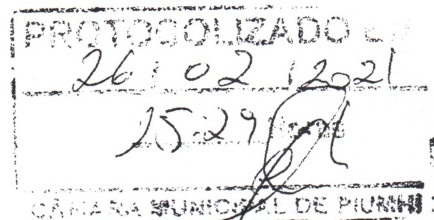 PROTOCOLIZADO EM
26 / 02 / 2021
15:29
CÂMARA MUNICIPAL DE PIUMHI